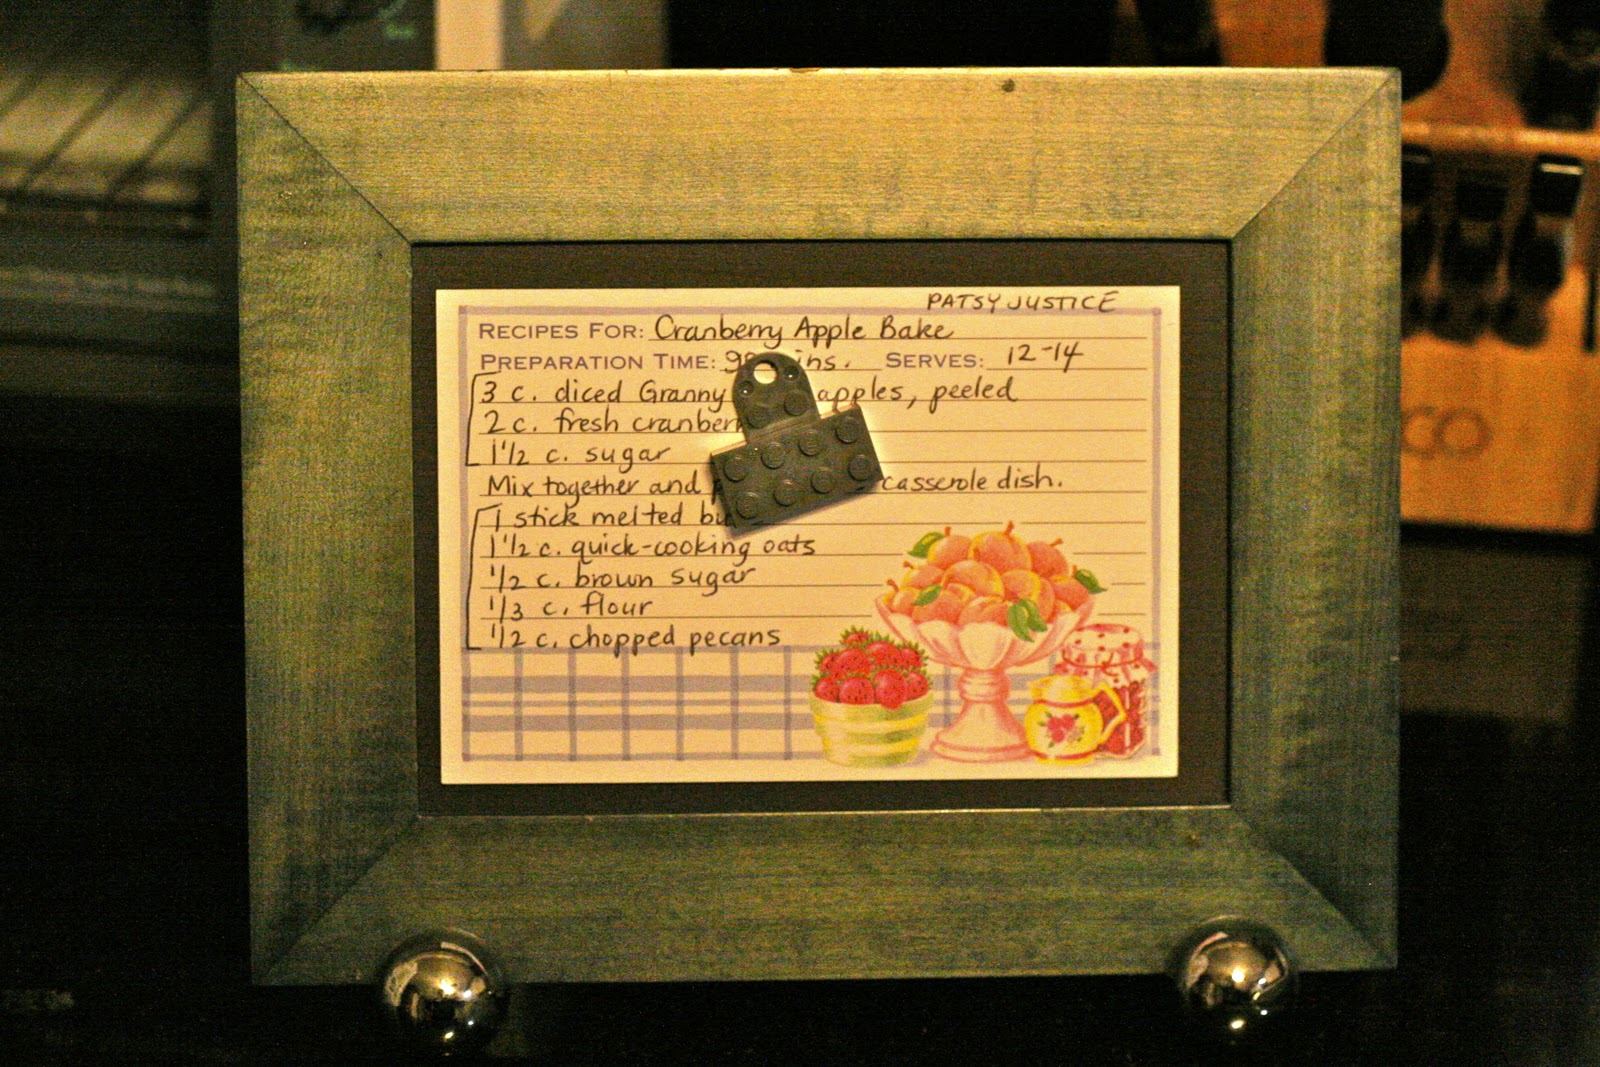 PATSY JUSTICE
RECIPES FOR: Cranberry Apple Bake
PREPARATION TIME: SERVES: 12-14
3 c. diced Granny apples, peeled
2 c. fresh
1 1/2 c. sugar
Mix together and casserole dish.
1 stick melted
1 1/2 c. quick-cooking oats
1/2 c. brown sugar
1/3 c. flour
1/2 c. chopped pecans